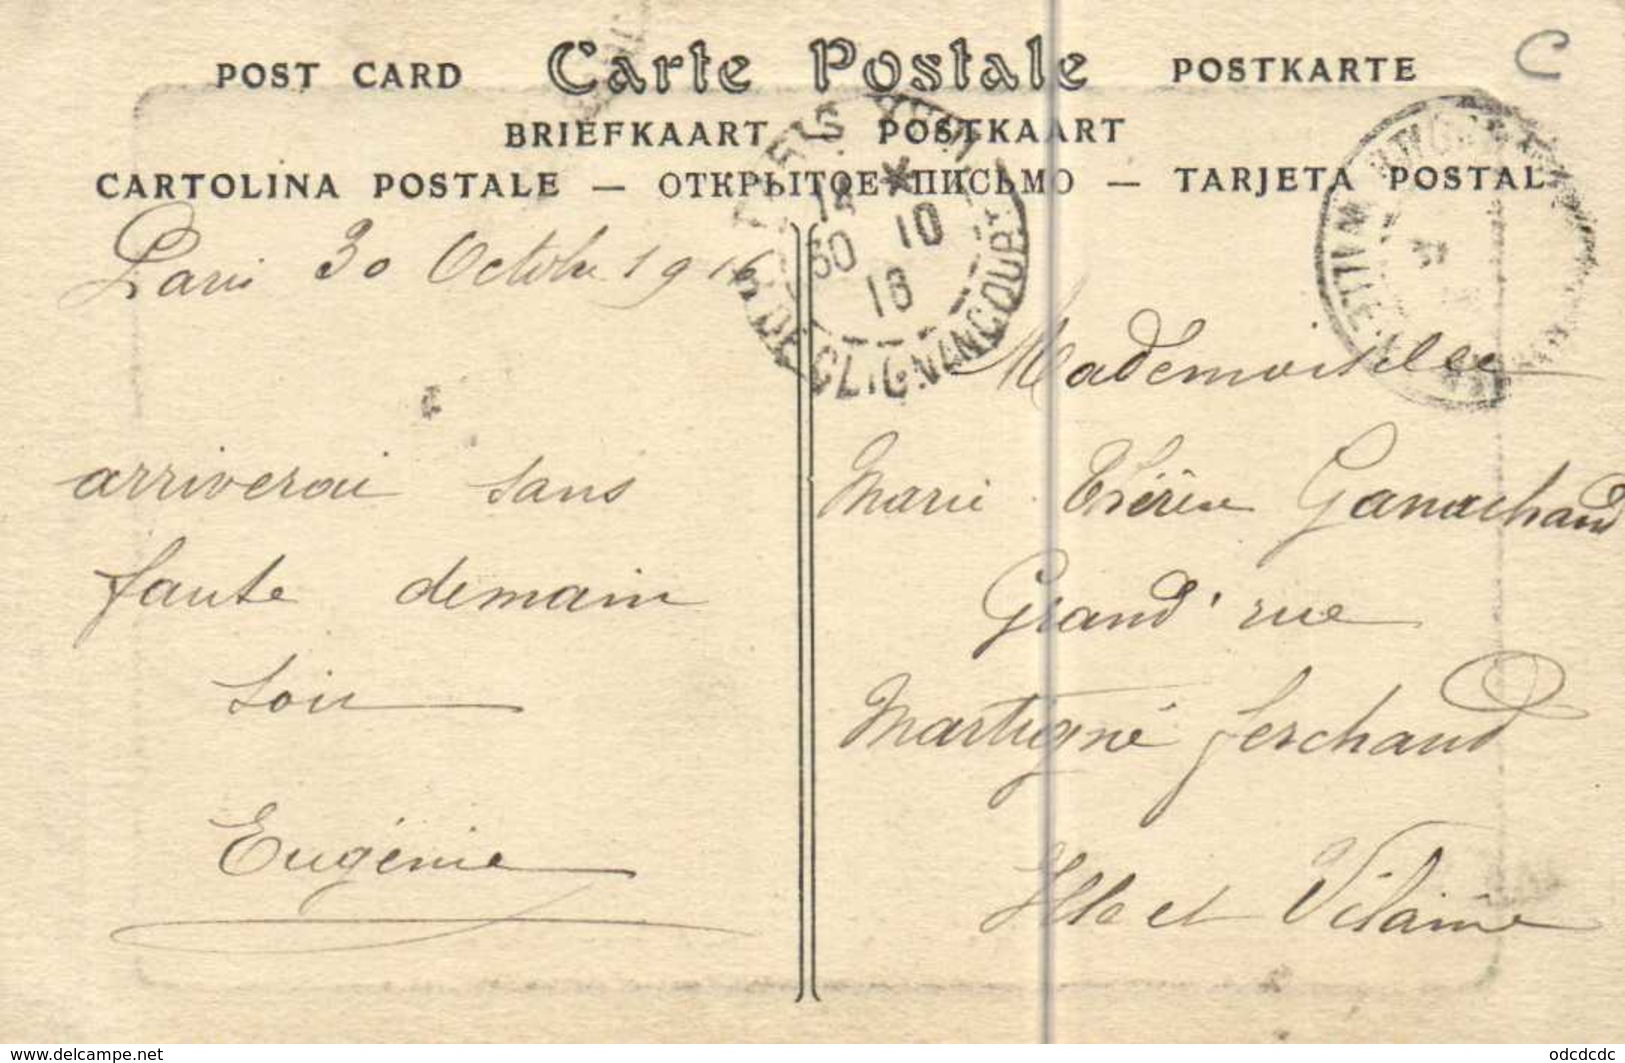 POST CARD Carte Postale POSTKARTE
BRIEFKAART — POSTKAART
CARTOLINA POSTALE — ОТКРЫТОЕ ПИСЬМО — TARJETA POSTAL
C
Paris 30 Octobre 1916
arriverai sans
faute demain
soir
Eugénie
30 10
16
R. DE CLIGNANCOURT
Mademoiselle
Marie Thérèse Ganachaud
Grand' rue
Martigné ferchaud
Ille et Vilaine
www.delcampe.net
odcdcdc